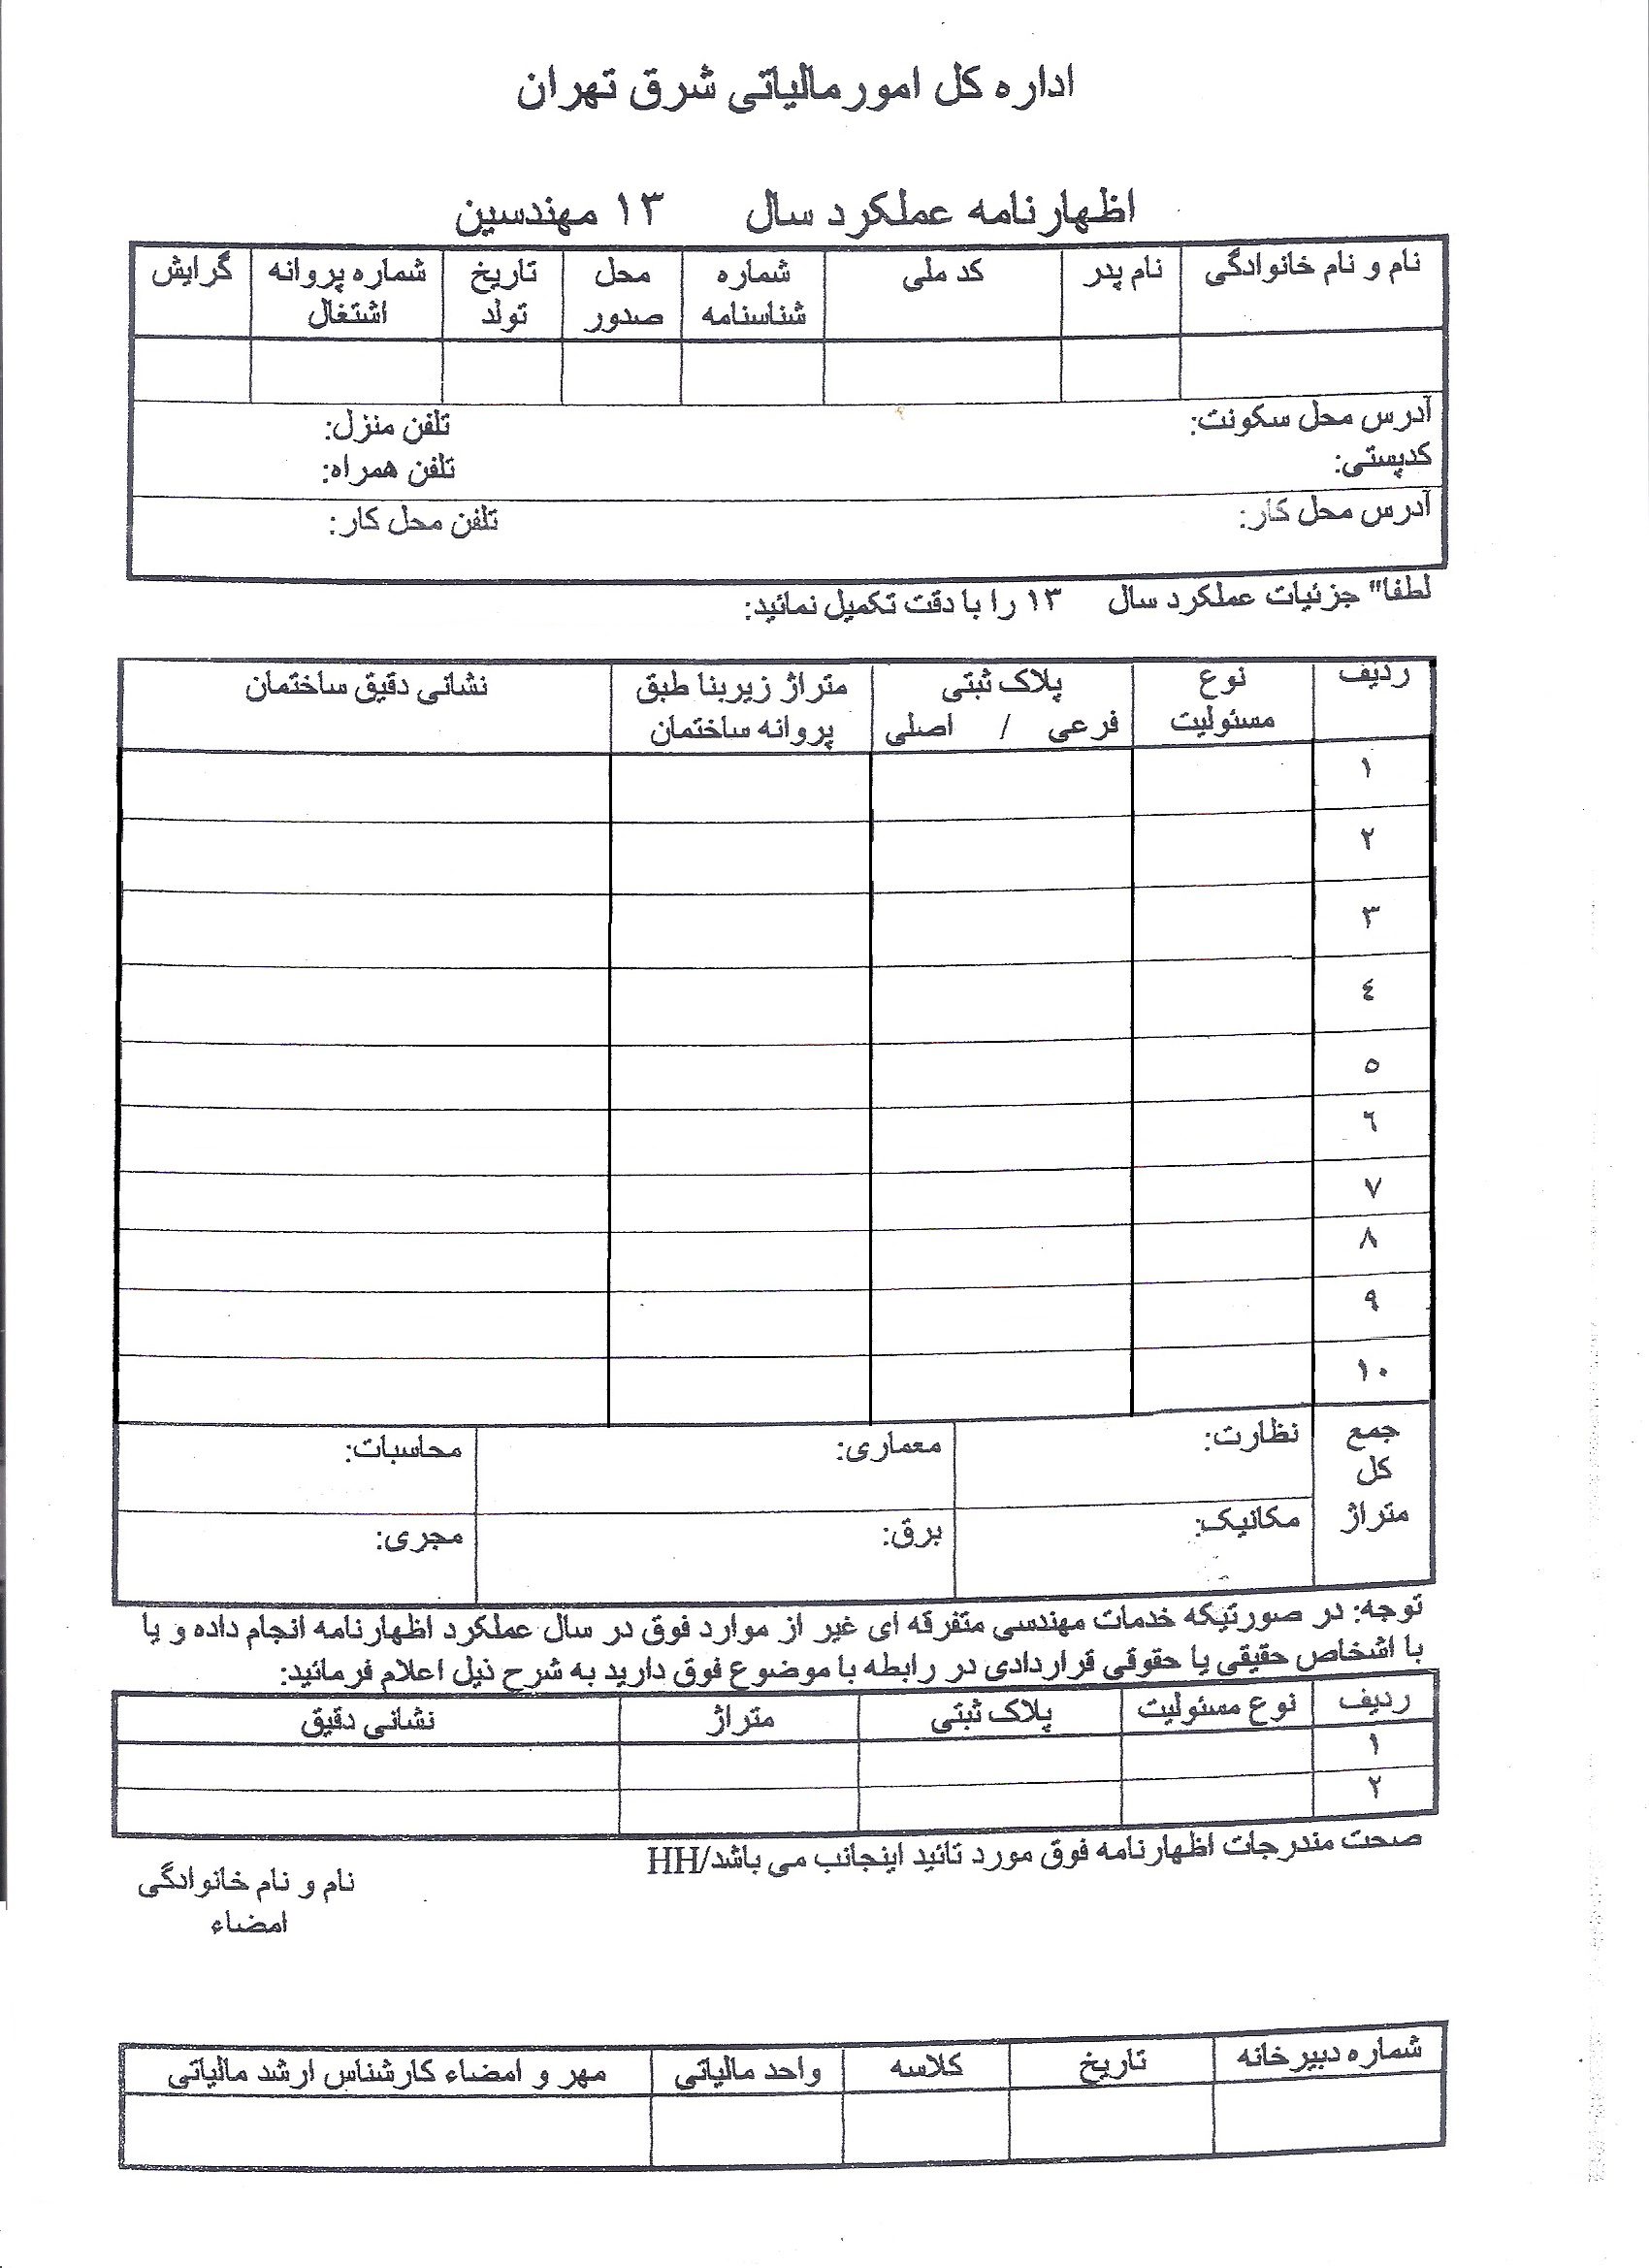 اداره کل امور مالیاتی شرق تهران
اظهارنامه عملکرد سال ۱۳ مهندسین
نام و نام خانوادگی نام پدر کد ملی شماره شناسنامه محل صدور تاریخ تولد شماره پروانه اشتغال گرایش
آدرس محل سکونت: تلفن منزل:
کدپستی: تلفن همراه:
آدرس محل کار: تلفن محل کار:
لطفا" جزئیات عملکرد سال ۱۳ را با دقت تکمیل نمائید:
ردیف نوع مسئولیت پلاک ثبتی فرعی / اصلی متراژ زیربنا طبق پروانه ساختمان نشانی دقیق ساختمان
۱
۲
۳
٤
٥
٦
۷
۸
۹
۱۰
جمع کل متراژ
نظارت: معماری: محاسبات:
مکانیک: برق: مجری:
توجه: در صورتیکه خدمات مهندسی متفرقه ای غیر از موارد فوق در سال عملکرد اظهارنامه انجام داده و یا
با اشخاص حقیقی یا حقوقی قراردادی در رابطه با موضوع فوق دارید به شرح ذیل اعلام فرمائید:
ردیف نوع مسئولیت پلاک ثبتی متراژ نشانی دقیق
۱
۲
صحت مندرجات اظهارنامه فوق مورد تائید اینجانب می باشد/HH
نام و نام خانوادگی
امضاء
شماره دبیرخانه تاریخ کلاسه واحد مالیاتی مهر و امضاء کارشناس ارشد مالیاتی